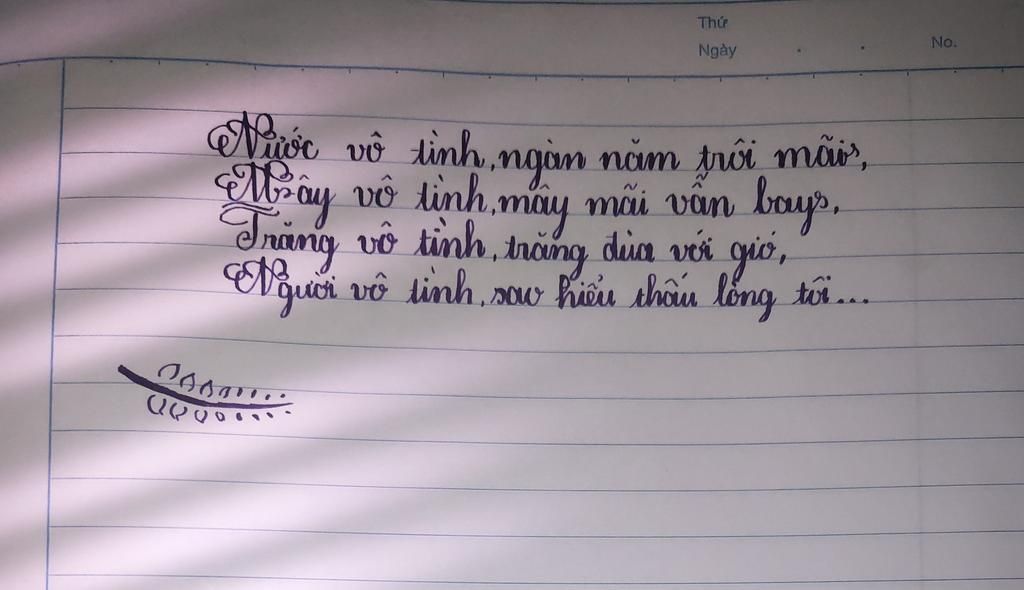 Thứ
Ngày . . No.
Nước vô tình, ngàn năm trôi mãi,
Mây vô tình, mây mãi vẫn bay,
Trăng vô tình, trăng đùa với gió,
Người vô tình, sao hiểu thấu lòng tôi...